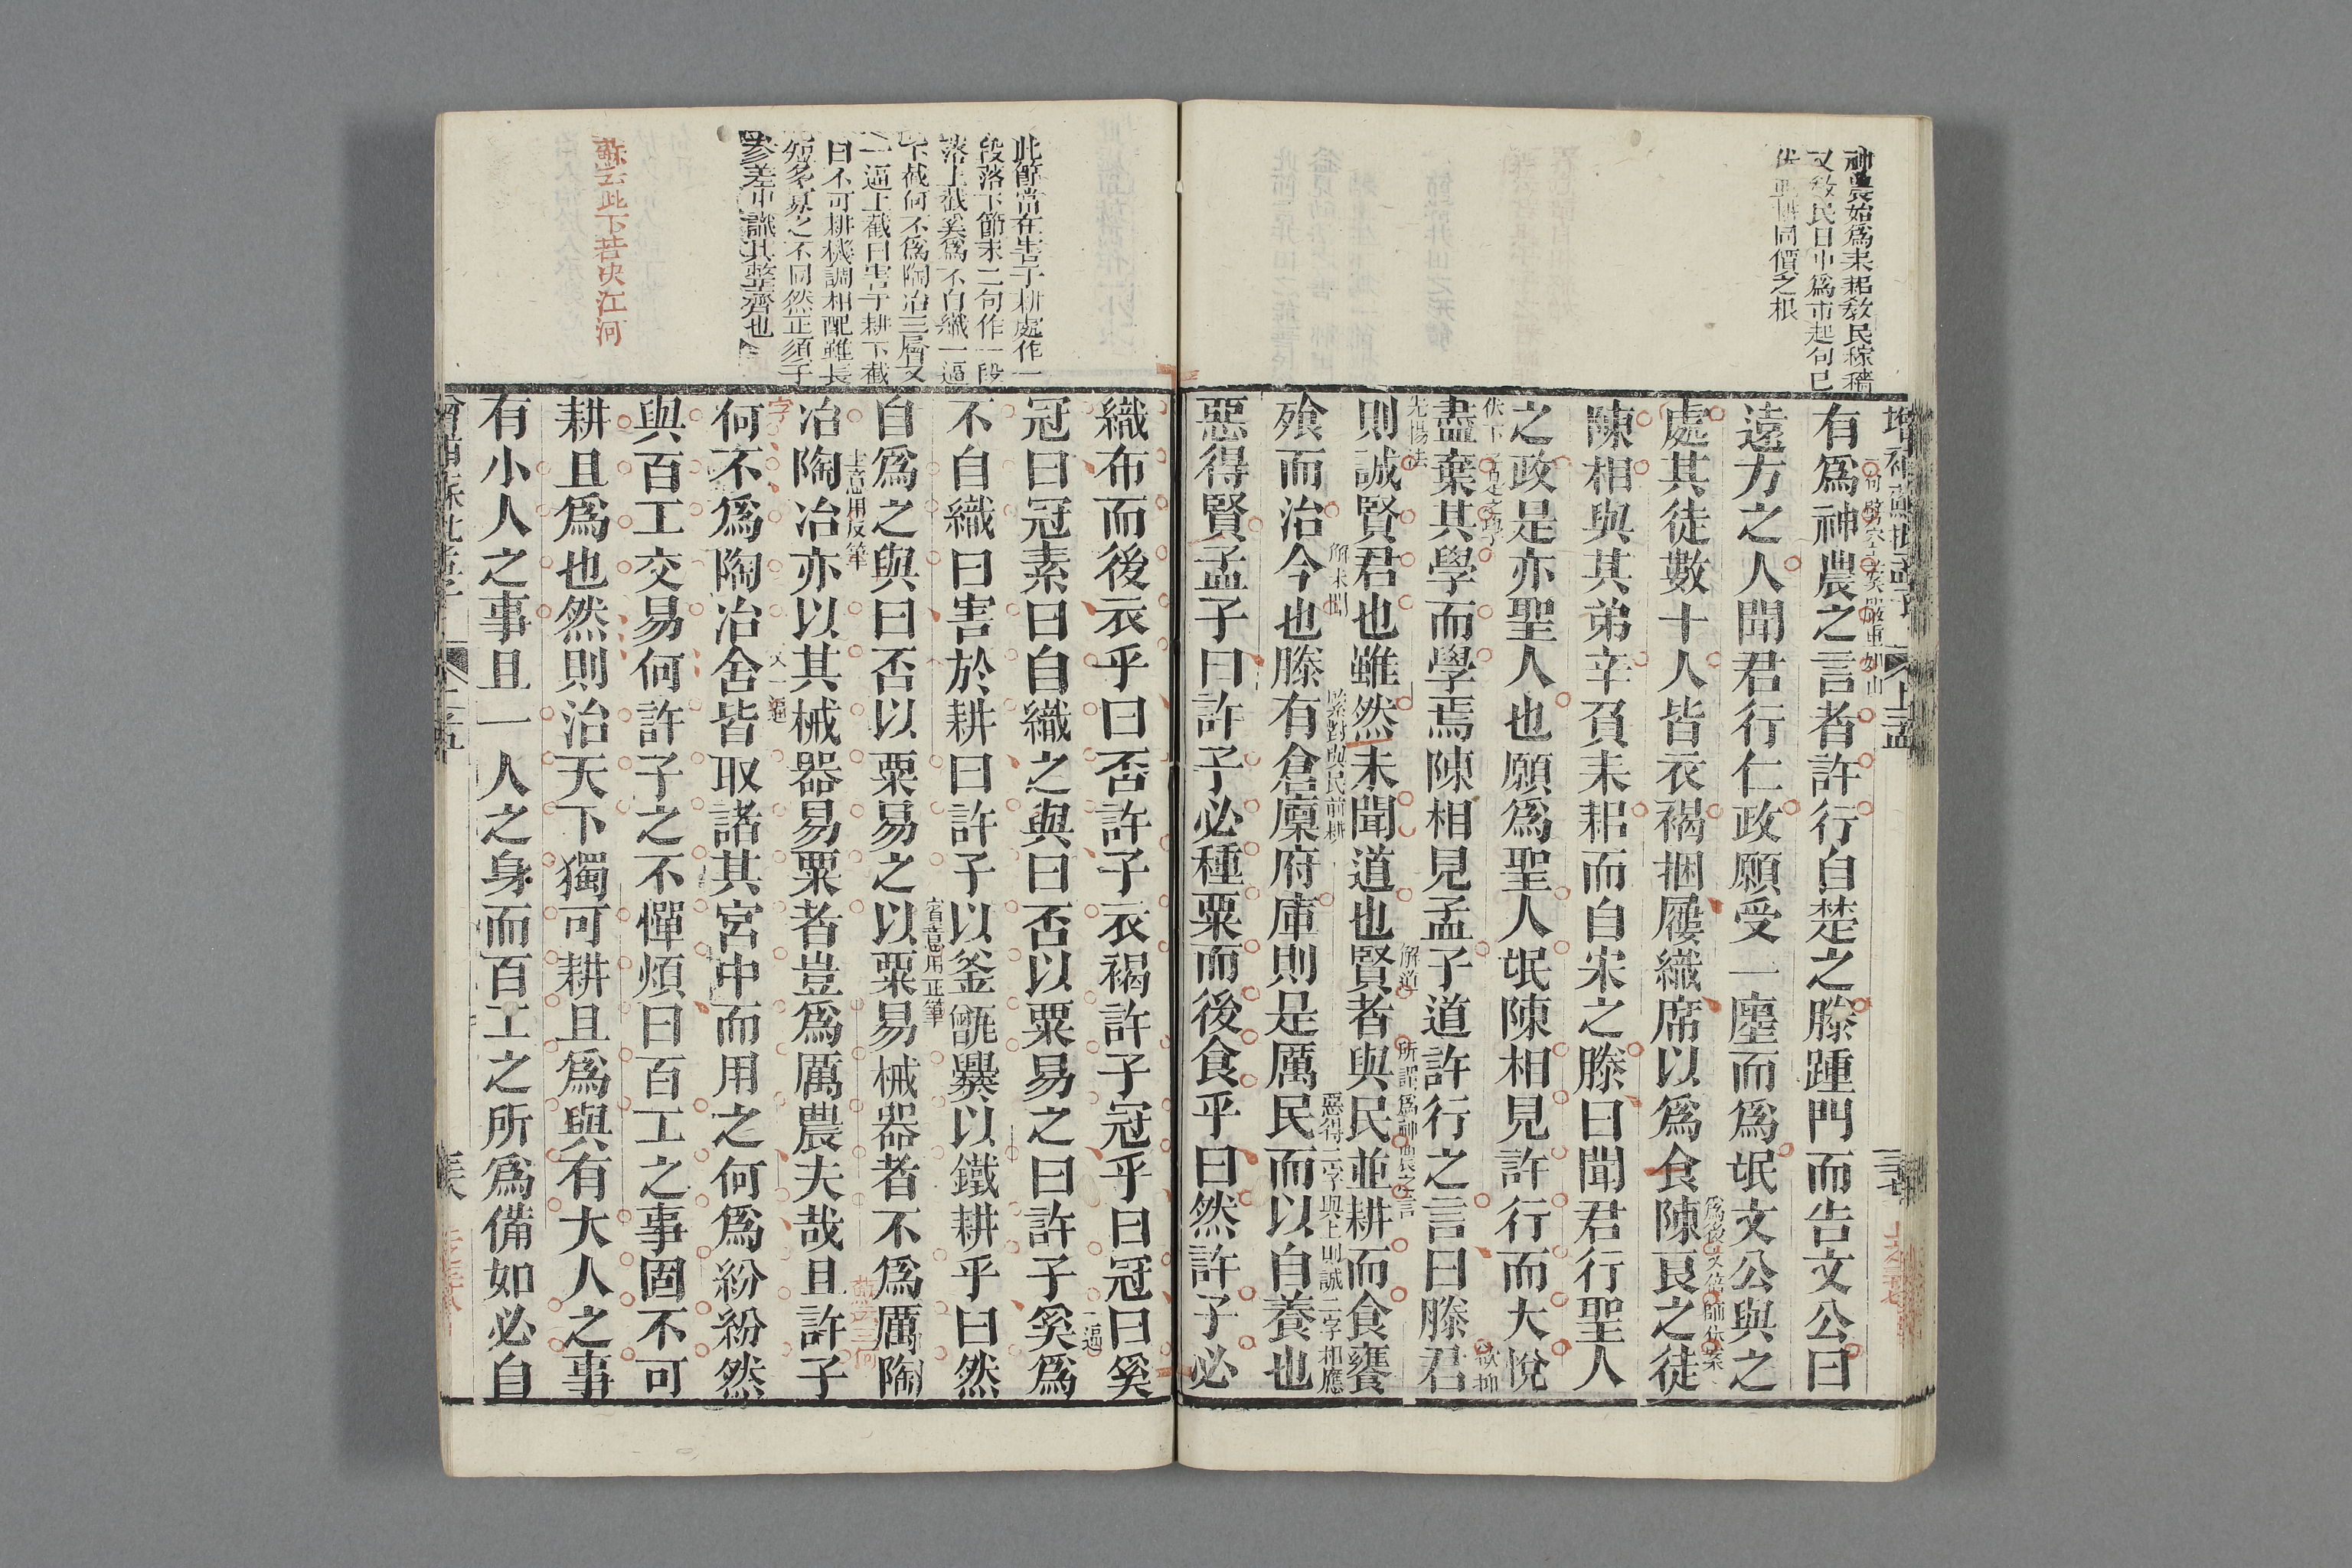 神農始爲耒耜教民稼穡
又教民日中爲市起句已
同價之根
有爲神農之言者許行自楚之滕踵門而告文公曰
遠方之人聞君行仁政願受一廛而爲氓文公與之
處其徒數十人皆衣褐捆屨織席以爲食陳良之徒
陳相與其弟辛負耒耜而自宋之滕曰聞君行聖人
之政是亦聖人也願爲聖人氓陳相見許行而大悅
盡棄其學而學焉陳相見孟子道許行之言曰滕君
則誠賢君也雖然未聞道也賢者與民並耕而食饔
解道
所謂爲神農之言
飱而治今也滕有倉廩府庫則是厲民而以自養也
解未聞
緊對與民前耕
惡得二字與上則誠二字相應
惡得賢孟子曰許子必種粟而後食乎曰然許子必
此節當在害于耕處作一
段落下節末二句作一段
落上截奚爲不自織一逼
下截何不爲陶冶三層又
一逼上截曰害于耕下截
曰不可耕機調相配雖長
短多寡之不同然正須于
參差中識其整齊也
蘇云此下若決江河
織布而後衣乎曰否許子衣褐許子冠乎曰冠曰奚
冠曰冠素曰自織之與曰否以粟易之曰許子奚爲
一逼
不自織曰害於耕曰許子以釜甑爨以鐵耕乎曰然
自爲之與曰否以粟易之以粟易械器者不爲厲陶
賓意用正筆
冶陶冶亦以其械器易粟者豈爲厲農夫哉且許子
主意用反筆
何不爲陶冶舍皆取諸其宮中而用之何爲紛紛然
又一逼
與百工交易何許子之不憚煩曰百工之事固不可
耕且爲也然則治天下獨可耕且爲與有大人之事
有小人之事且一人之身而百工之所爲備如必自